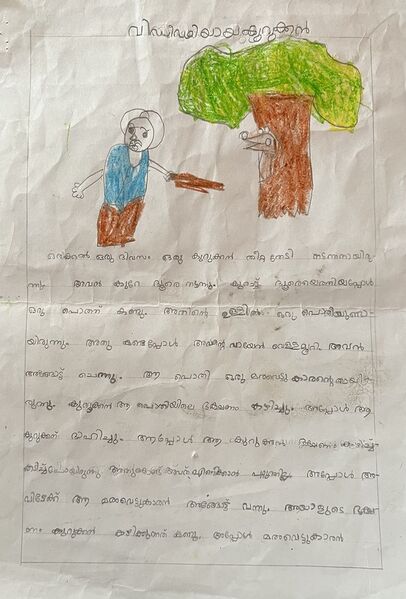 വിഡ്ഢിയായ കുറുക്കൻ
ഒരിക്കൽ ഒരു ദിവസം ഒരു കുറുക്കൻ തീറ്റ തേടി നടന്നതായിരു
ന്നു. അവൻ കുറേ ദൂരെ നടന്നു. കുറച്ച് ദൂരെയെത്തിയപ്പോൾ
ഒരു പൊത്ത് കണ്ടു. അതിന്റെ ഉള്ളിൽ ഒരു പൊതിയുണ്ടാ
യിരുന്നു. അതു കണ്ടപ്പോൾ അവന്റെ വായേൽ വെള്ളമൂറി. അവൻ
അങ്ങോട്ട് ചെന്നു. ആ പൊതി ഒരു മരംവെട്ടുകാരന്റെതായി
രുന്നു. കുറുക്കൻ ആ പൊതിയിലെ ഭക്ഷണം കഴിച്ചു. അപ്പോൾ ആ
കുറുക്കന് ദാഹിച്ചു. അപ്പോൾ ആ കുറുക്കൻ ഭക്ഷണം കഴിച്ച്
അതുകൊണ്ട് പറ്റുന്നില്ല. അപ്പോൾ അ
വിടേക്ക് ആ മരംവെട്ടുകാരൻ അങ്ങോട്ട് വന്നു. അയാളുടെ ഭക്ഷ
ണം കുറുക്കൻ കഴിക്കുന്നത് കണ്ടു. അപ്പോൾ മരംവെട്ടുകാരൻ